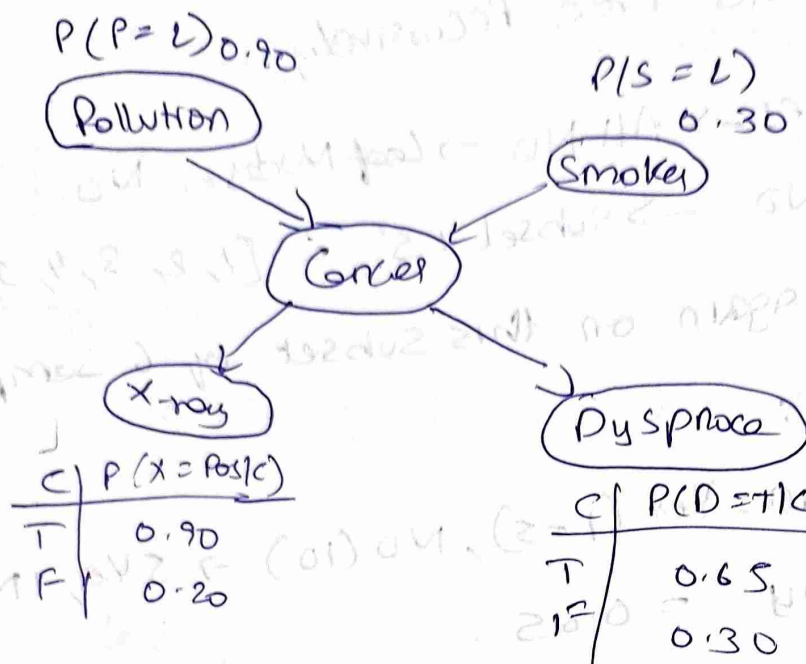 P(P = L) 0.90
Pollution
P(S = L)
0.30
Smoker
Cancer
X-ray
Dyspnoea
C P(X = Pos|C)
T 0.90
F 0.20
C P(D = T|C
T 0.65
F 0.30